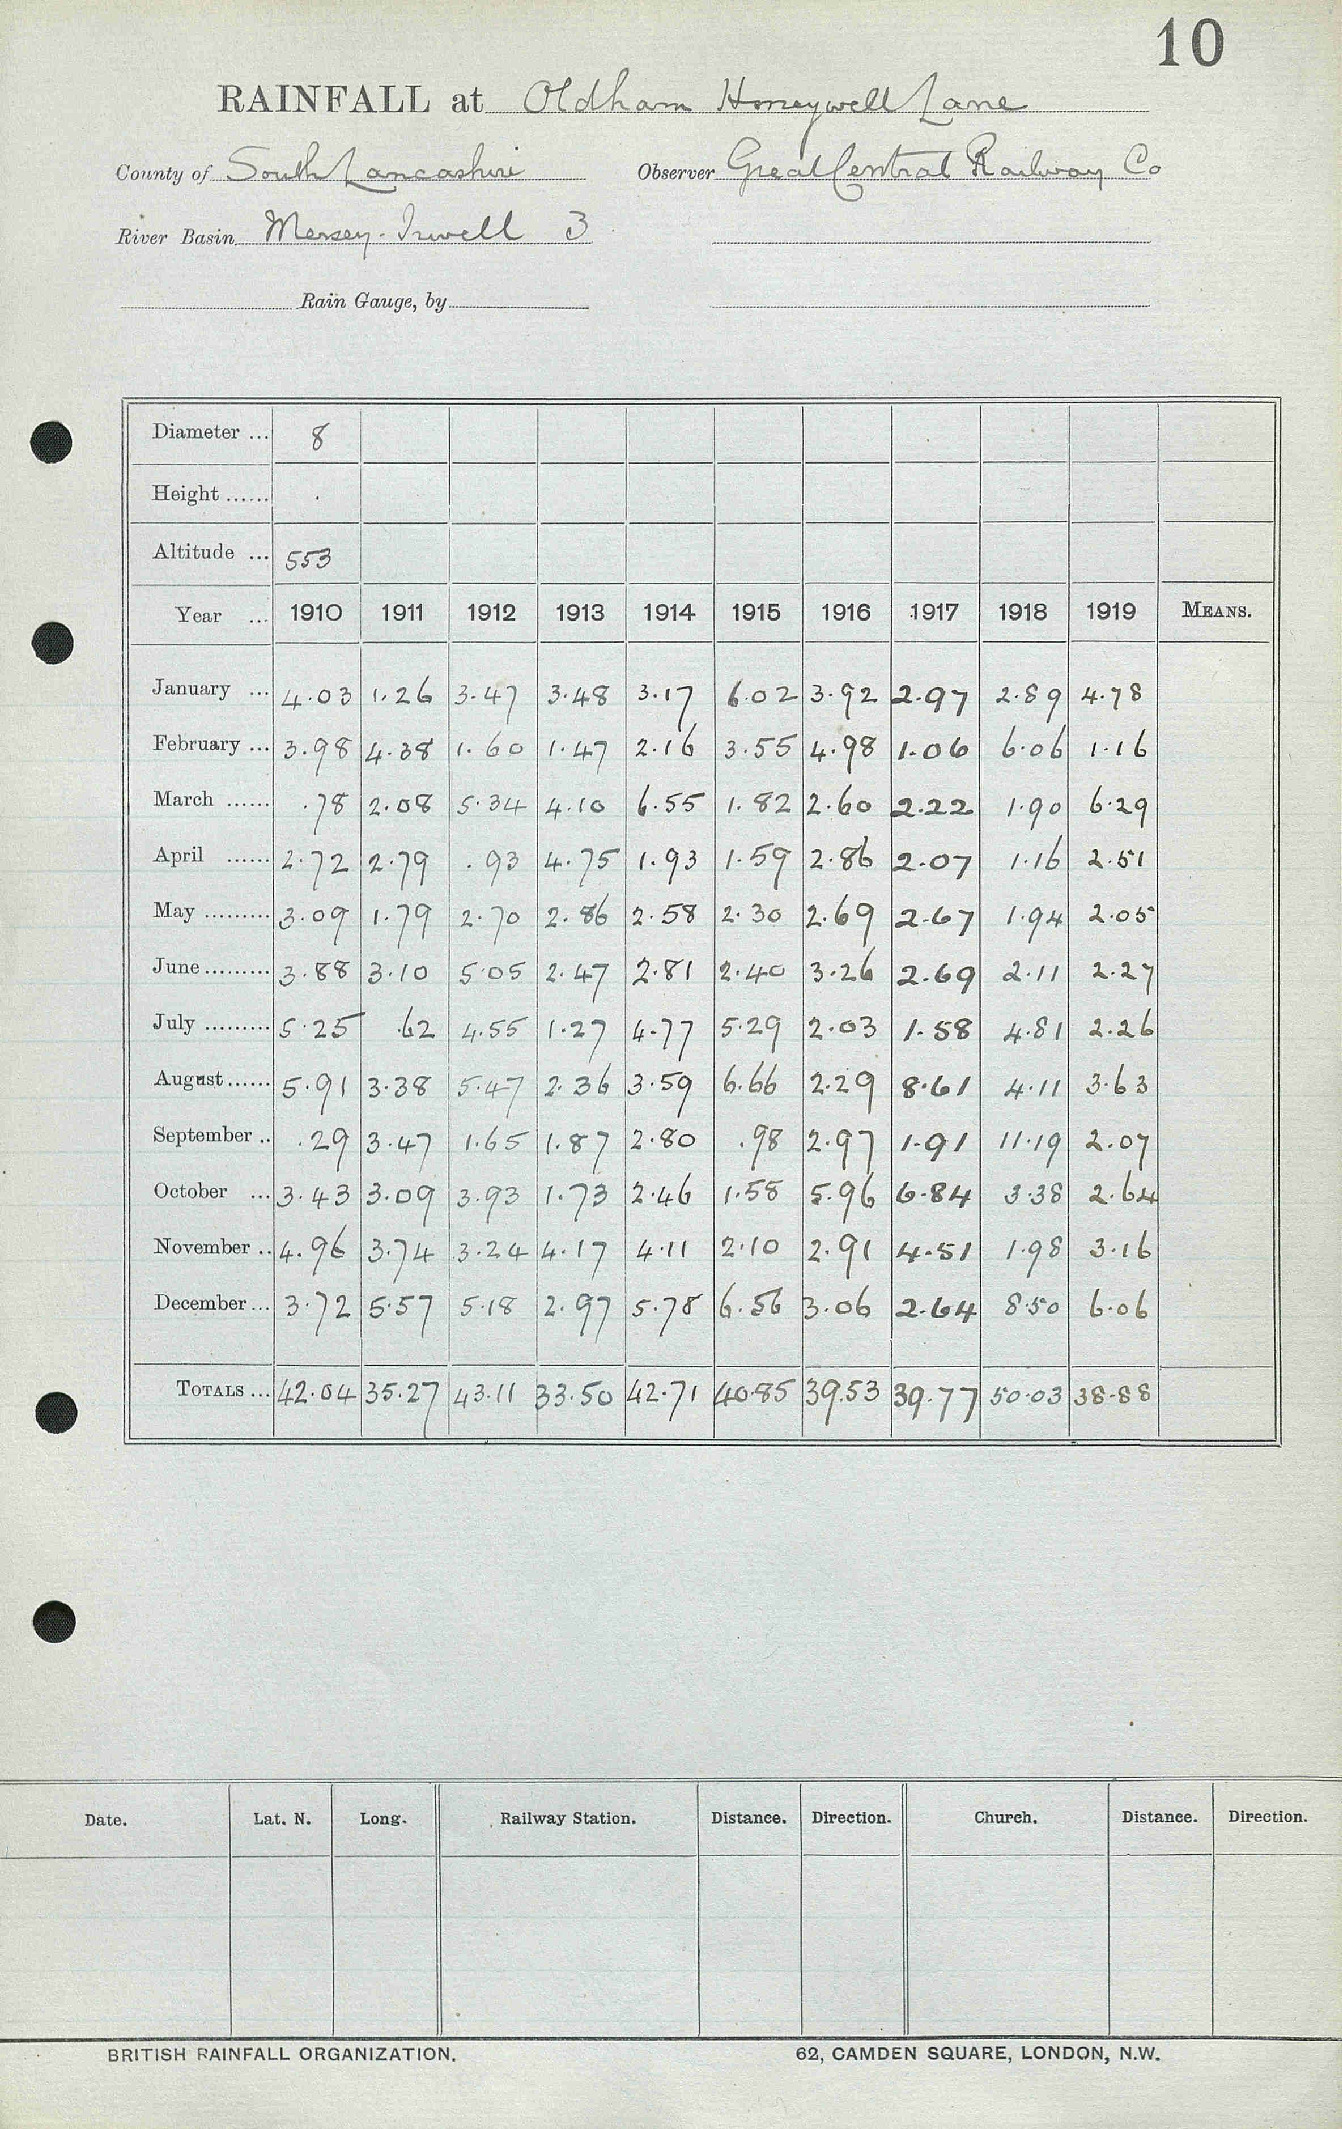 10
RAINFALL at Oldham Honeywell Lane
County of South Lancashire Observer Great Central Railway Co
River Basin Mersey-Irwell 3
Rain Gauge, by
Diameter ... 8
Height ......
Altitude ... 553
Year ... 1910 1911 1912 1913 1914 1915 1916 1917 1918 1919 MEANS.
January ... 4.03 1.26 3.47 3.48 3.17 6.02 3.92 2.97 2.89 4.78
February ... 3.98 4.38 1.60 1.47 2.16 3.55 4.98 1.06 6.06 1.16
March ...... .78 2.08 5.34 4.10 6.55 1.82 2.60 2.22 1.90 6.29
April ...... 2.72 2.79 .93 4.75 1.93 1.59 2.86 2.07 1.16 2.51
May ......... 3.09 1.79 2.70 2.86 2.58 2.30 2.69 2.67 1.94 2.05
June ......... 3.88 3.10 5.05 2.47 2.81 2.40 3.26 2.69 2.11 2.27
July ......... 5.25 .62 4.55 1.27 4.77 5.29 2.03 1.58 4.81 2.26
August ...... 5.91 3.38 5.47 2.36 3.59 6.66 2.29 8.61 4.11 3.63
September .. .29 3.47 1.65 1.87 2.80 .98 2.97 1.91 11.19 2.07
October ... 3.43 3.09 3.93 1.73 2.46 1.58 5.96 6.84 3.38 2.64
November .. 4.96 3.74 3.24 4.17 4.11 2.10 2.91 4.51 1.98 3.16
December ... 3.72 5.57 5.18 2.97 5.78 6.56 3.06 2.64 8.50 6.06
TOTALS ... 42.04 35.27 43.11 33.50 42.71 40.85 39.53 39.77 50.03 38.88
Date. Lat. N. Long. Railway Station. Distance. Direction. Church. Distance. Direction.
BRITISH RAINFALL ORGANIZATION. 62, CAMDEN SQUARE, LONDON, N.W.